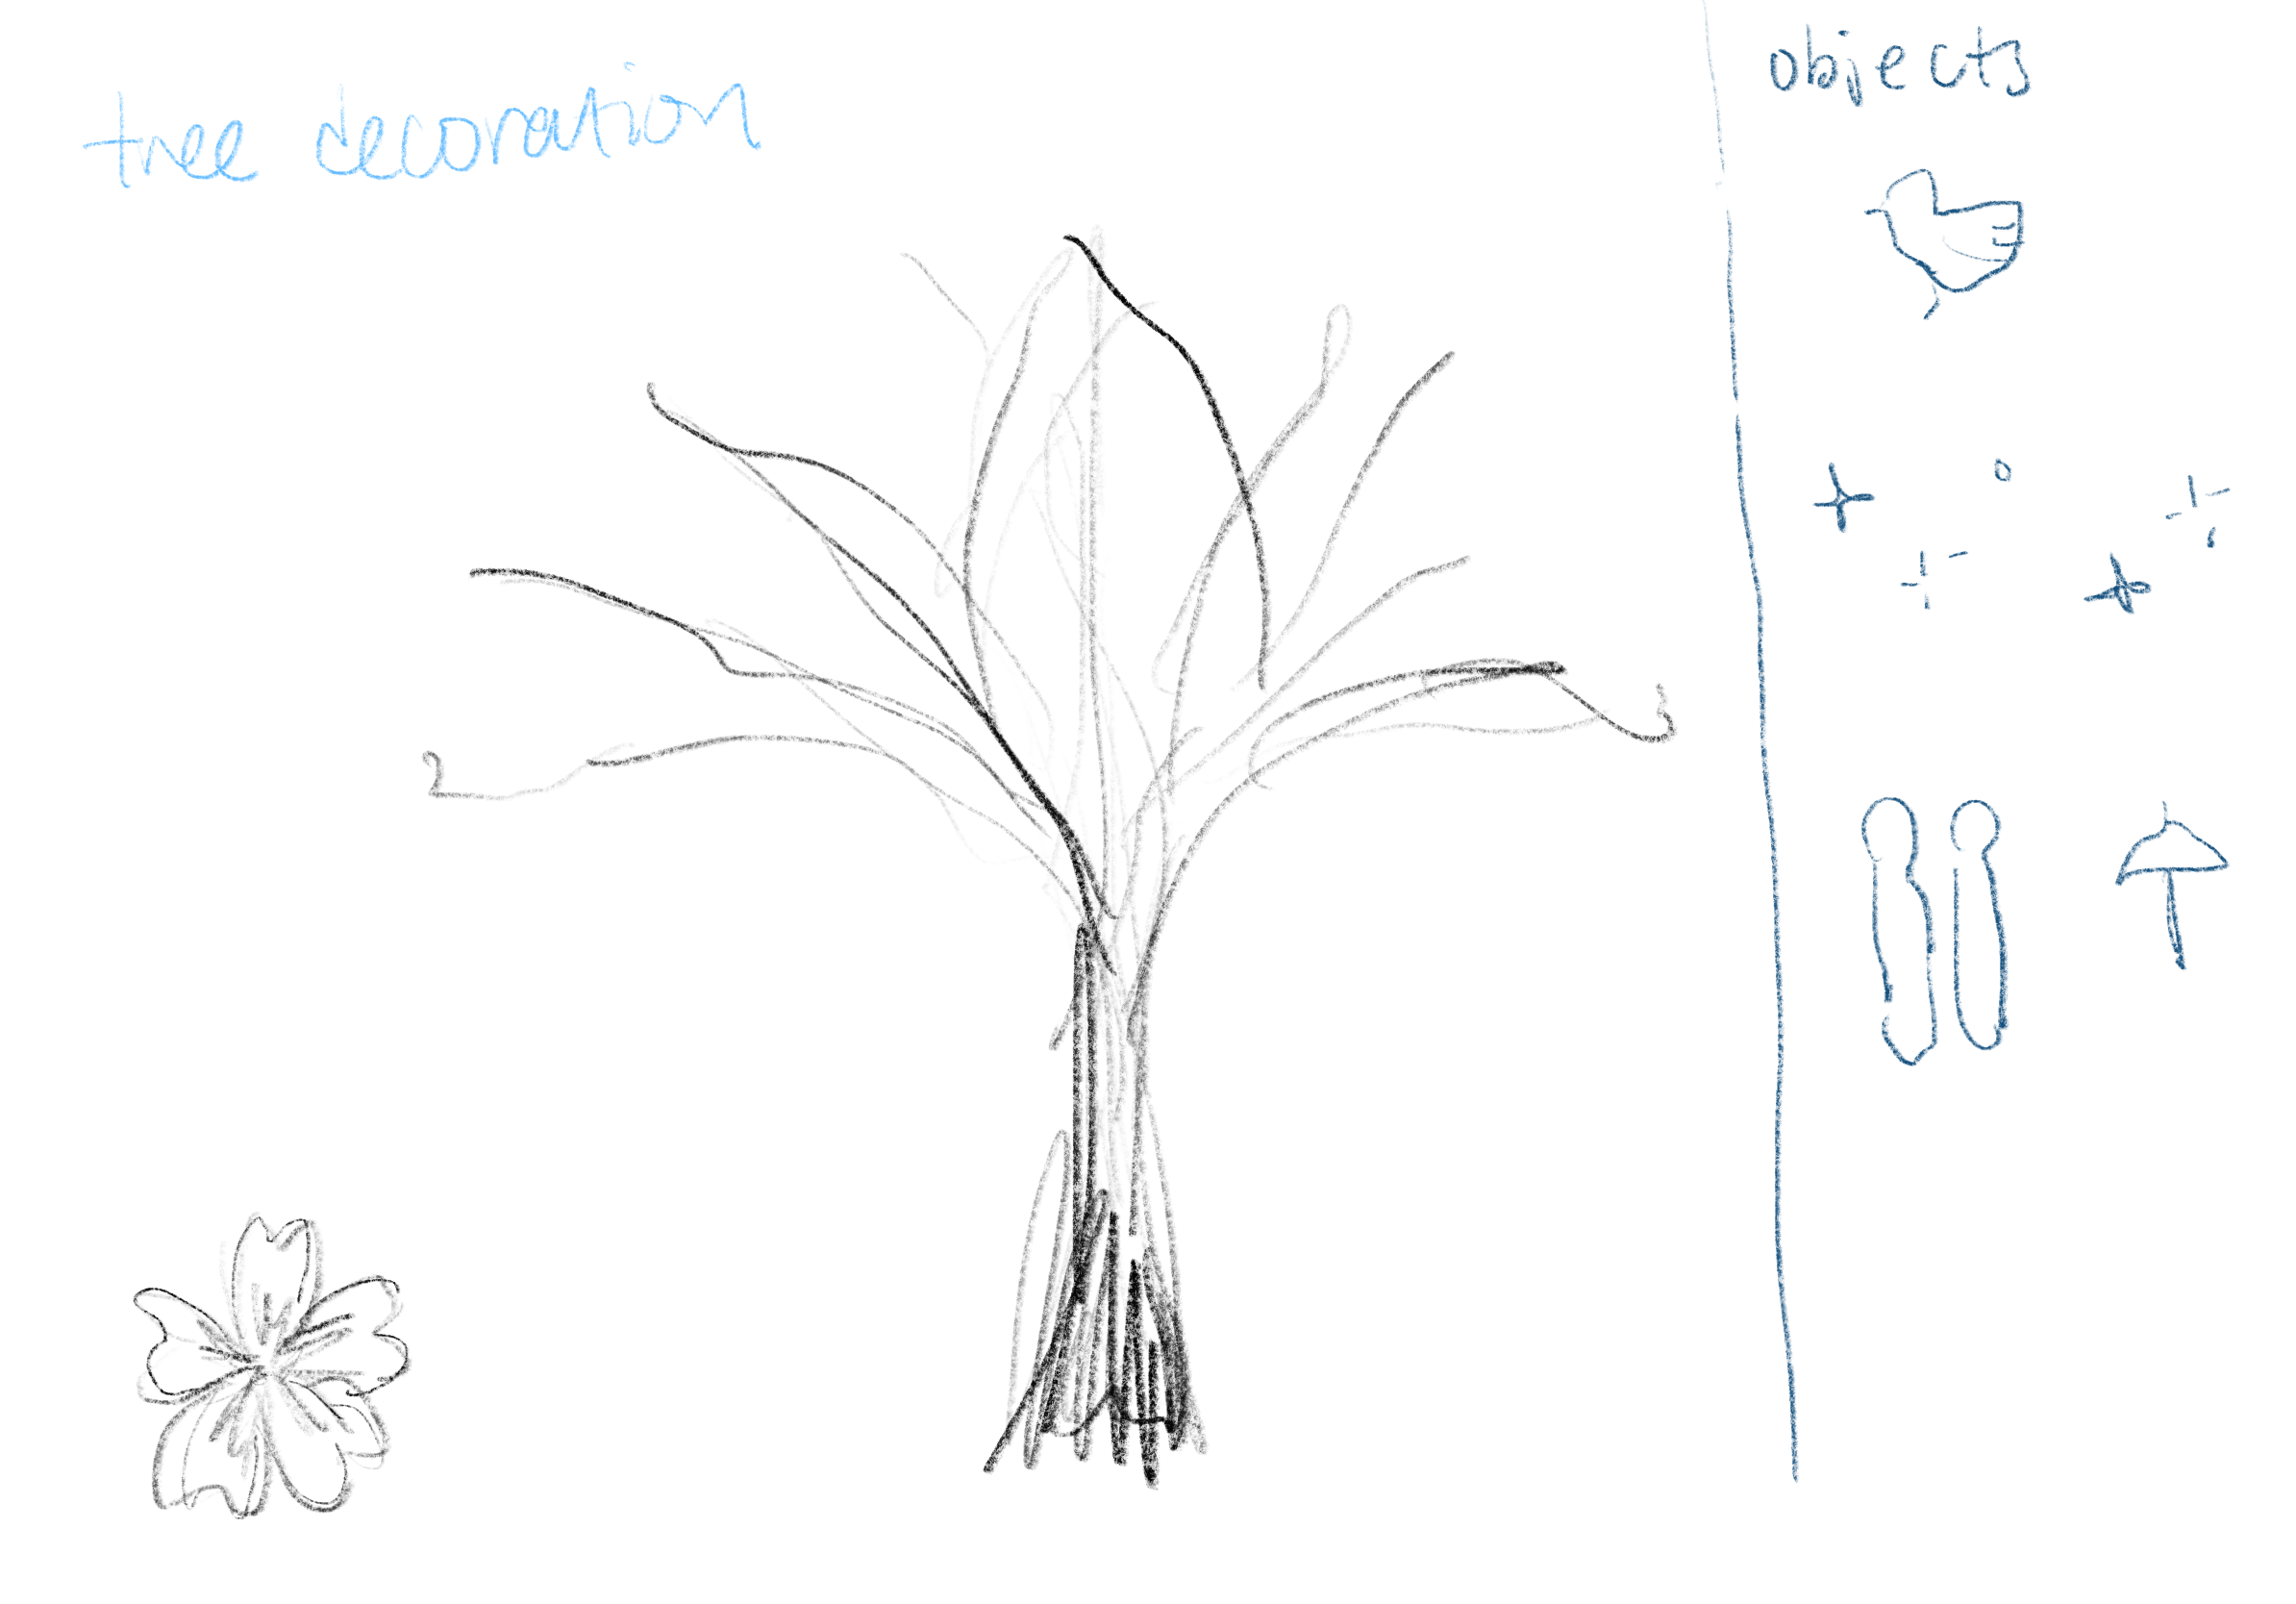 tree decoration
objects